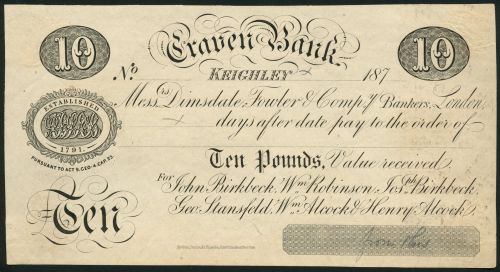 10 Craven Bank 10
No. KEIGHLEY 187
Messrs Dimsdale, Fowler & Compy Bankers, London,
days after date pay to the order of
ESTABLISHED
1791.
PURSUANT TO ACT 9. GEO. 4. CAP. 23.
Ten Pounds, Value received
For
John Birkbeck, Wm Robinson, Josph Birkbeck,
Geo Stansfeld, Wm Alcock & Henry Alcock.
Ten